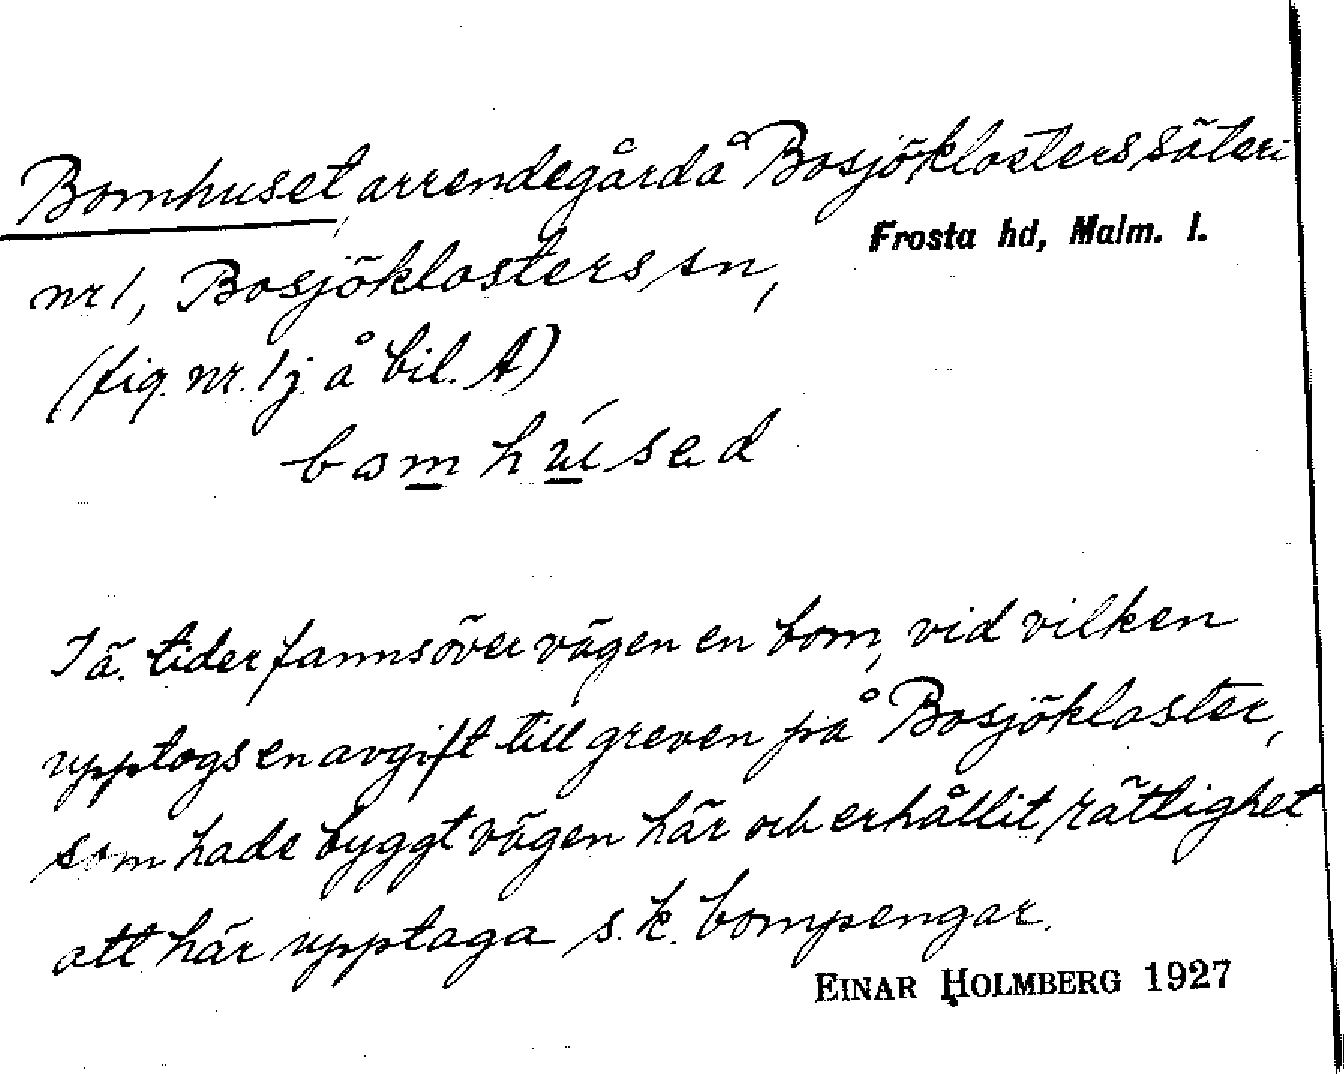 Bomhuset, arrendegård å Bosjöklosters säteri
Frosta hd, Malm. l.
nr 1, Bosjöklosters sn,
(fig. nr. 1j å bil. A)
bomhúsad
I ä. tider fanns över vägen en bom, vid vilken
upptogs en avgift till greven på Bosjökloster,
som hade byggt vägen här och erhållit rättighet
att här upptaga s.k. bompengar.
EINAR HOLMBERG 1927